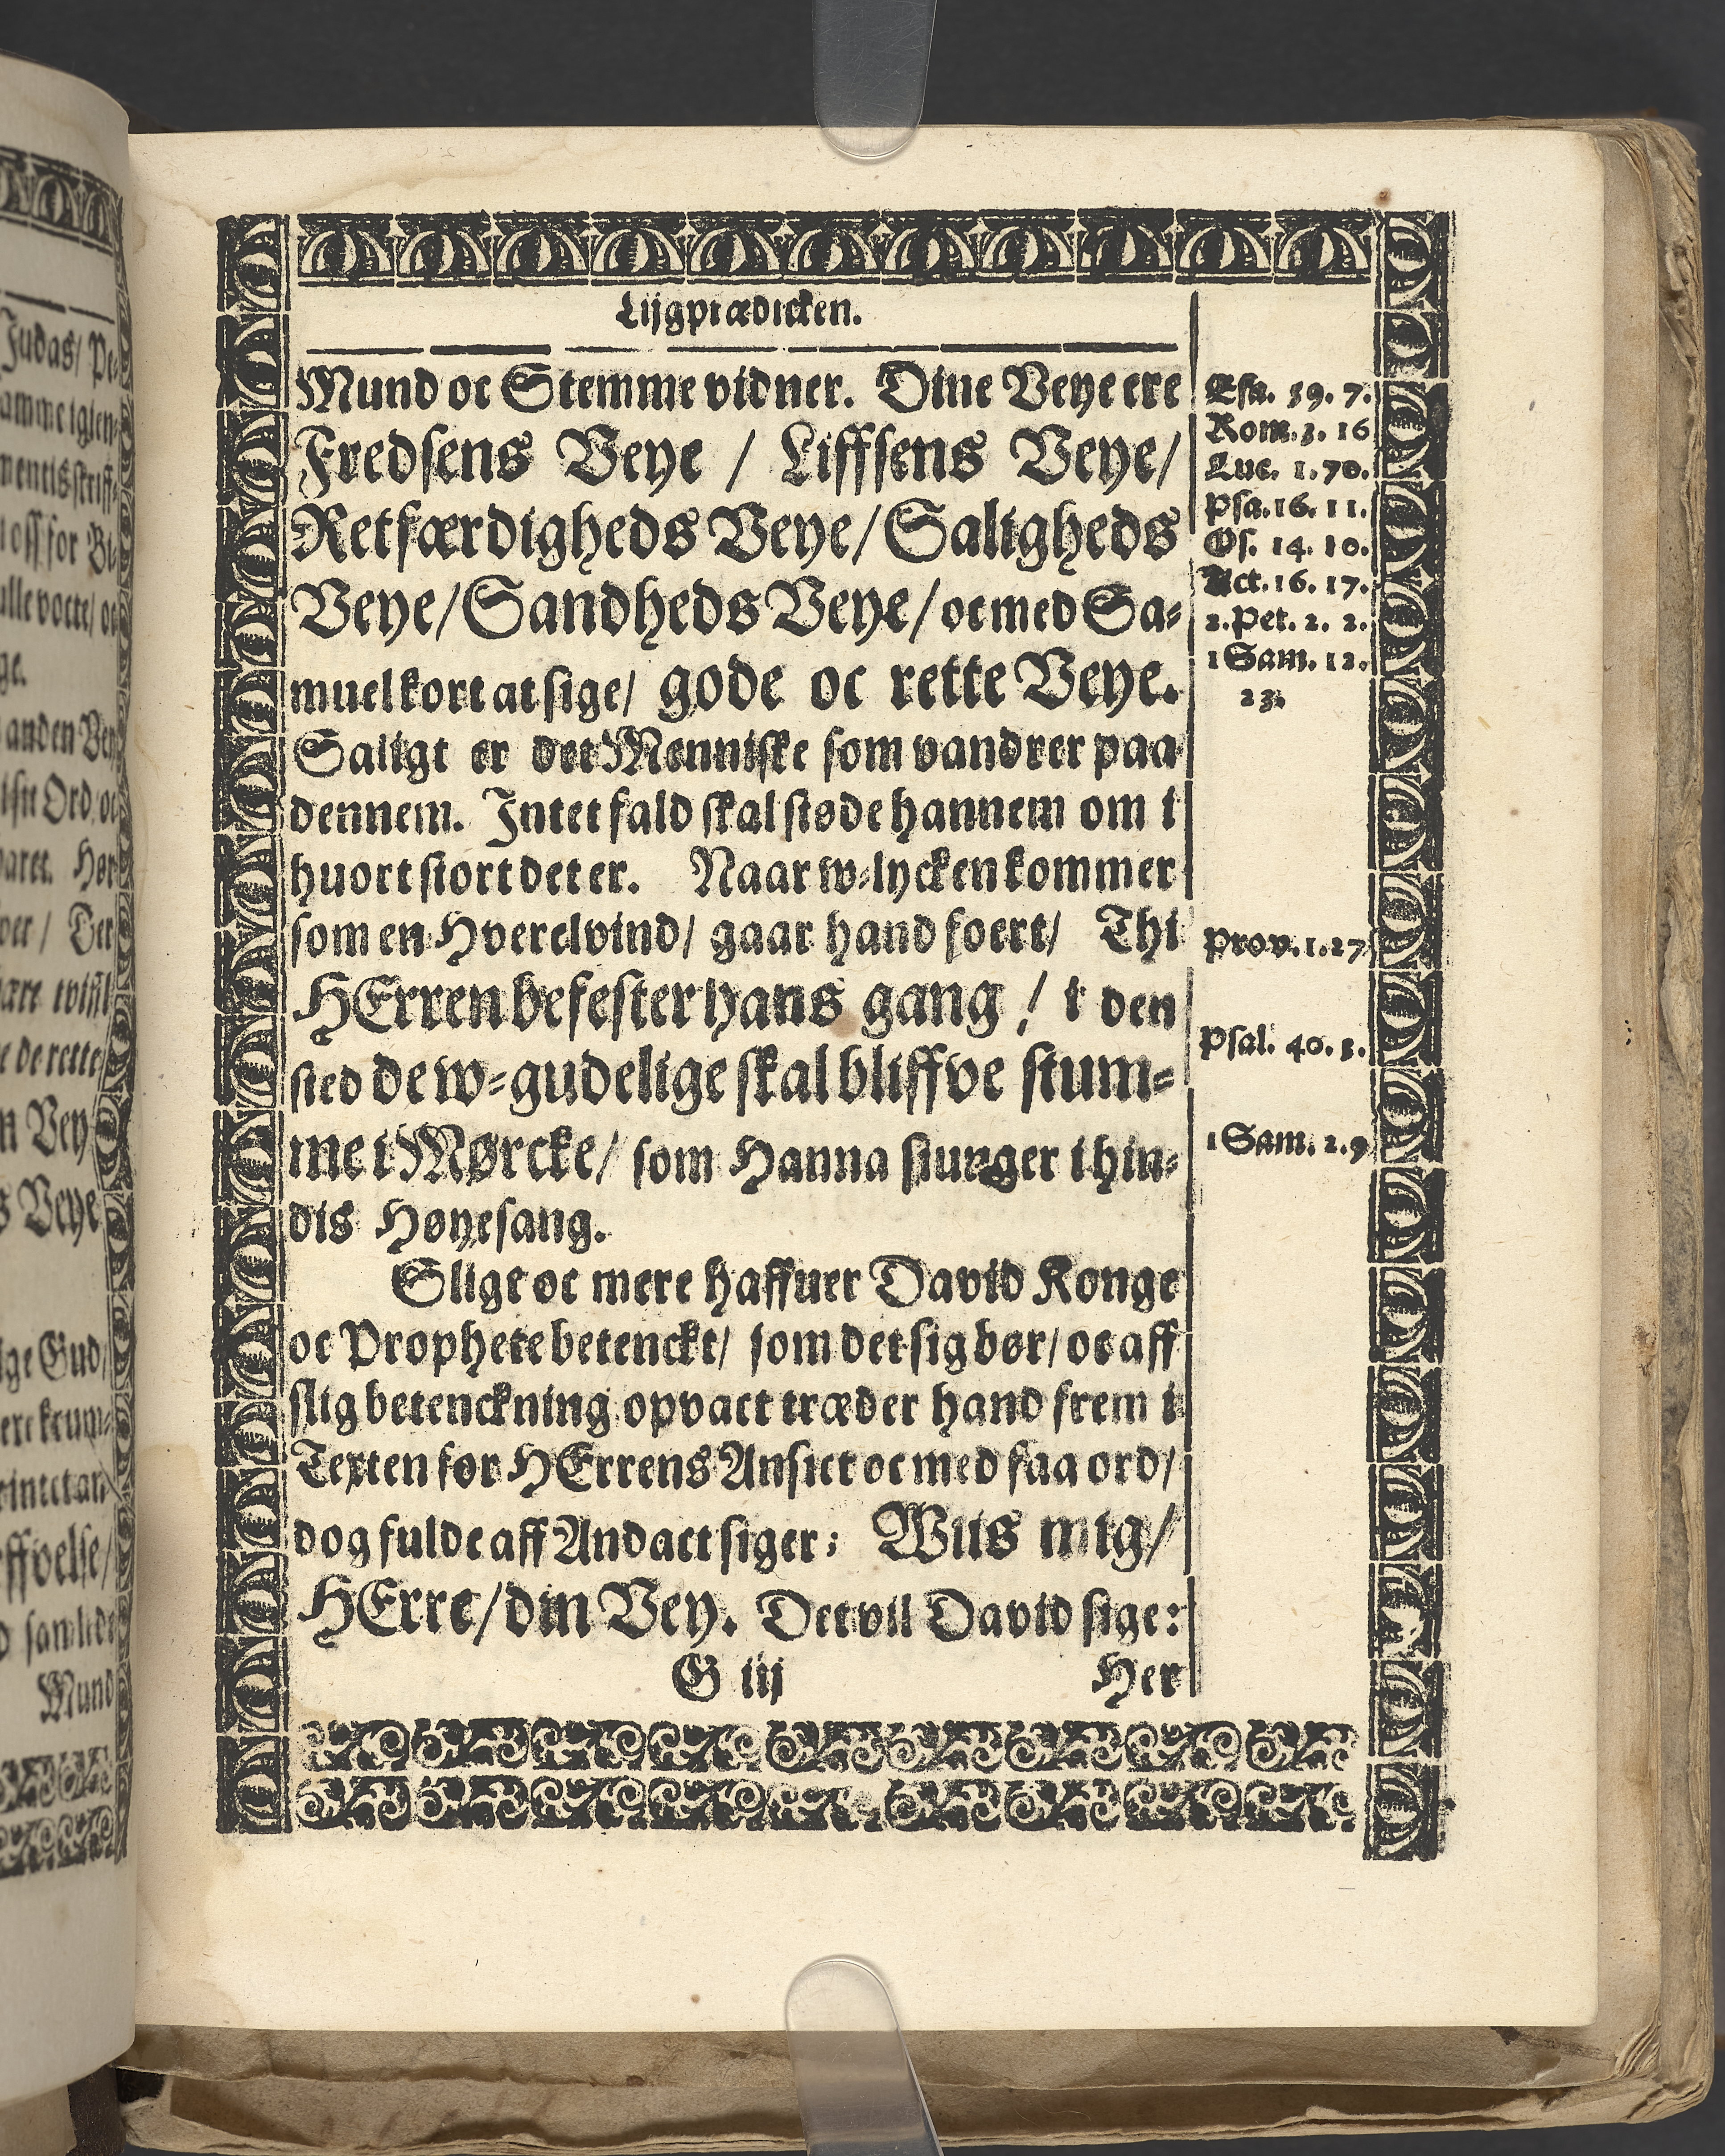 Judas/ Pe-
amme igien-
mentis skrifft-
l oss for Bi-
ulle vocte/ oc
ge.
anden Vey
Ord oc
varet. Hør
ver / Der
ære
e de rette
n Vey-
s Veye
ige Gud/
ere krum-
intet an-
ffvelse/
Mund
Lijgprædicken.
Mund oc Stemme vidner. Dine Veye ere
Fredsens Veye / Liffsens Veye/
Retfærdigheds Veye/ Saligheds
Veye/ Sandheds Veye/ oc med Sa-
muel kort at sige/ gode oc rette Veye.
Saligt er det Menniske som vandrer paa
dennem. Intet fald skal støde hannem om i
huort stort det er. Naar w-lycken kommer
som en Hverelvind/ gaar hand foert/ Thi
HErren befester hans gang / i den
sted de w-gudelige skal bliffve stum-
me i Mørcke/ som Hanna siunger i hin-
dis Høyesang.
Sligt oc mere haffuer David Konge
oc Prophete betenckt/ som det sig bør/ oc aff
slig betenckning opvact træder hand frem i
Texten for HErrens Ansict oc med faa ord/
dog fulde aff Andact siger: Wiis mig/
HErre/ din Vey. Det vil David sige:
G iij Her
Esa. 59. 7.
Rom. 3. 16
Luc. 1. 70.
Psa. 16. 11.
Os. 14. 10.
Act. 16. 17.
2. Pet. 2. 2.
1 Sam. 12.
23.
Prov. 1. 27
Psal. 40. 3.
1 Sam. 2. 9